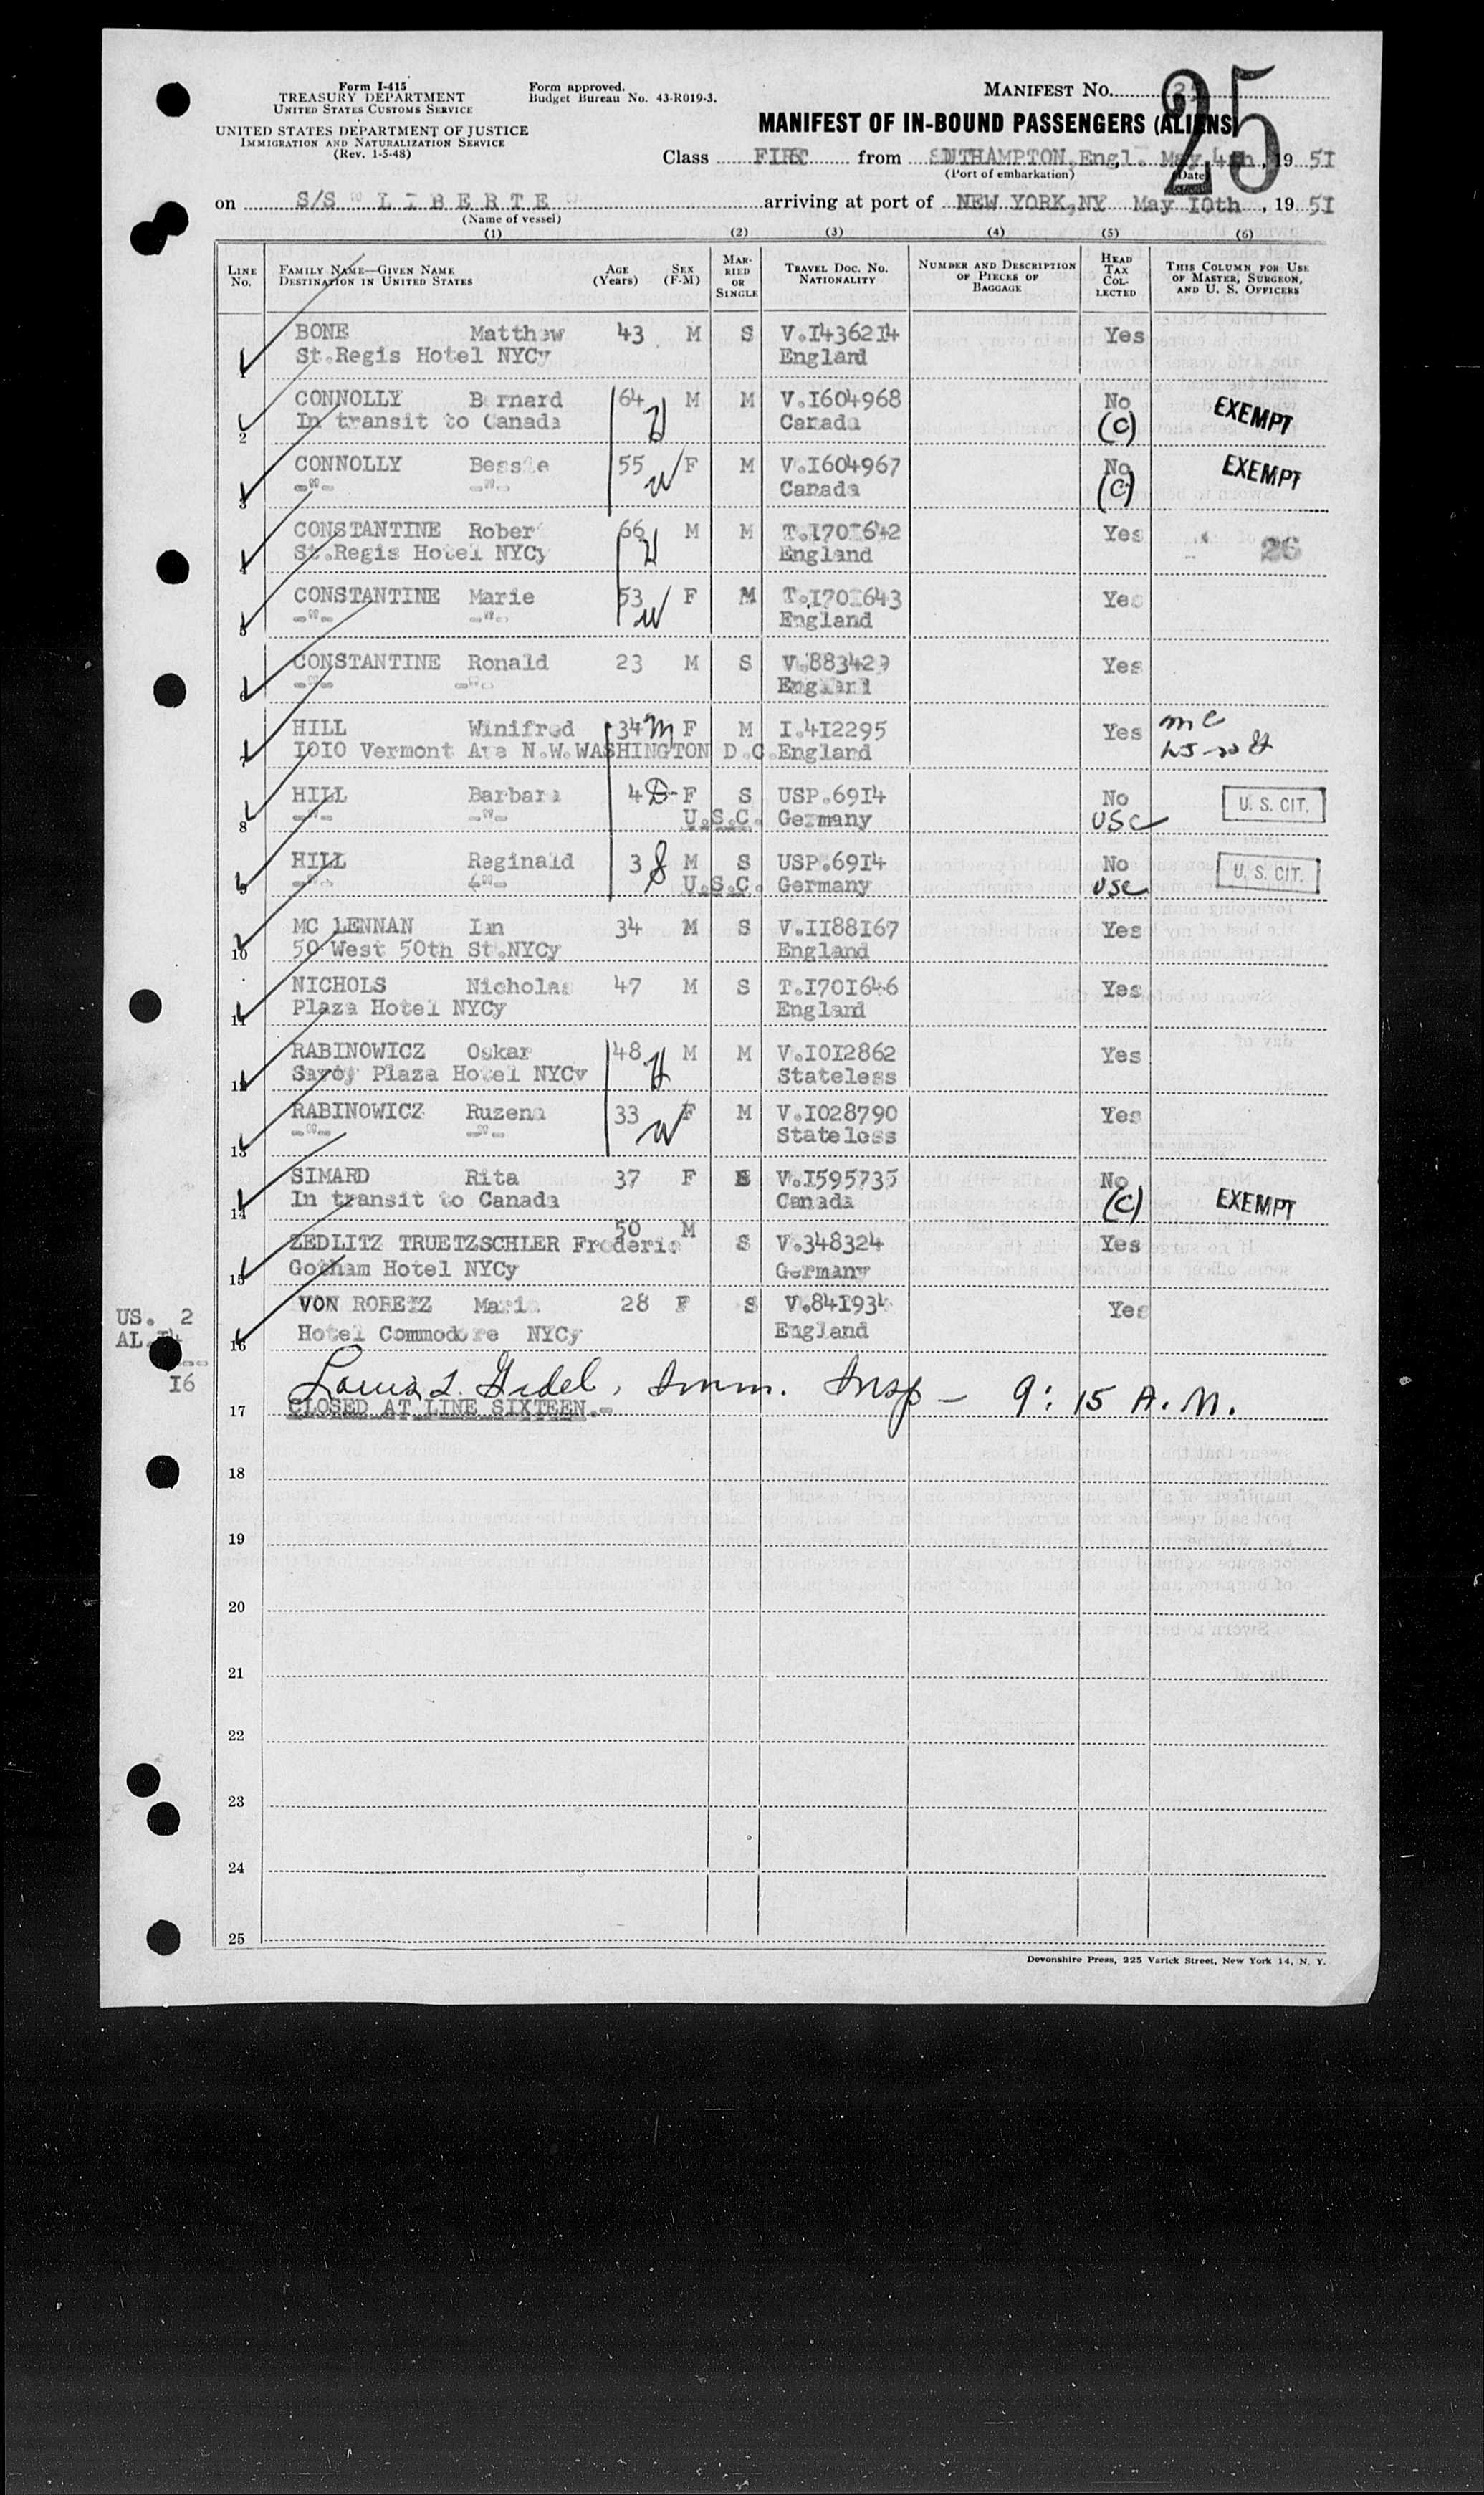 Form I-415
TREASURY DEPARTMENT
UNITED STATES CUSTOMS SERVICE
UNITED STATES DEPARTMENT OF JUSTICE
IMMIGRATION AND NATURALIZATION SERVICE
(Rev. 1-5-48)
Form approved.
Budget Bureau No. 43-R019-3.
MANIFEST NO. 25
MANIFEST OF IN-BOUND PASSENGERS (ALIENS)
Class FIRST from SOUTHAMPTON, Engl. May 4th, 19 51
(Port of embarkation) (Date)
on S/S " L I B E R T E " arriving at port of NEW YORK, NY May I0th, 19 5I
(Name of vessel)
(1) (2) (3) (4) (5) (6)
LINE No. FAMILY NAME—GIVEN NAME DESTINATION IN UNITED STATES AGE (Years) SEX (F-M) MARRIED OR SINGLE TRAVEL DOC. NO. NATIONALITY NUMBER AND DESCRIPTION OF PIECES OF BAGGAGE HEAD TAX COLLECTED THIS COLUMN FOR USE OF MASTER, SURGEON, AND U. S. OFFICERS
1 BONE Matthew 43 M S V.I4362I4 Yes
St.Regis Hotel NYCy England
2 CONNOLLY Bernard 64 M M V.I604968 No EXEMPT
In transit to Canada Canada (C)
3 CONNOLLY Bessie 55 W F M V.I604967 No EXEMPT
-"- -"- Canada (C)
4 CONSTANTINE Rober 66 H M M T.I70I642 Yes 26
St.Regis Hotel NYCy England
5 CONSTANTINE Marie 53 W F M T.I70I643 Yes
-"- -"- England
6 CONSTANTINE Ronald 23 M S V.883429 Yes
-"- -"- England
7 HILL Winifred 34 M F M I.4I2295 Yes mc
I0I0 Vermont Ave N.W.WASHINGTON D.C. England
8 HILL Barbara 4 D F S USP.69I4 No U. S. CIT.
-"- -"- U.S.C. Germany USC
9 HILL Reginald 3 S M S USP.69I4 No U. S. CIT.
-"- -"- U.S.C. Germany USC
10 MC LENNAN Ian 34 M S V.II88I67 Yes
50 West 50th St.NYCy England
11 NICHOLS Nicholas 47 M S T.I70I646 Yes
Plaza Hotel NYCy England
12 RABINOWICZ Oskar 48 H M M V.I0I2862 Yes
Savoy Plaza Hotel NYCy Stateless
13 RABINOWICZ Ruzena 33 W F M V.I028790 Yes
-"- -"- Stateless
14 SIMARD Rita 37 F S V.I595735 No EXEMPT
In transit to Canada Canada (C)
15 ZEDLITZ TRUETZSCHLER Frederic 50 M S V.348324 Yes
Gotham Hotel NYCy Germany
16 VON RORETZ Mari 28 F S V.84I934 Yes
Hotel Commodore NYCy England
US. 2
AL.I4
---
I6
Louis I. Gidel, Imm. Insp — 9:15 A.M.
17 CLOSED AT LINE SIXTEEN.-
18
19
20
21
22
23
24
25
Devonshire Press, 225 Varick Street, New York 14, N. Y.